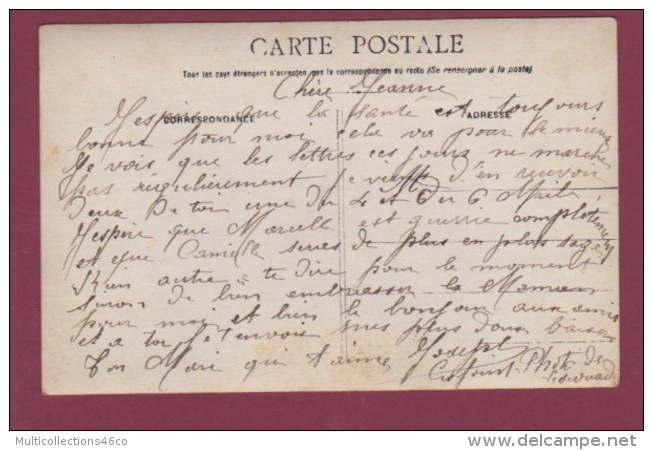 CARTE POSTALE
Tous les pays étrangers n'acceptent pas la correspondance au recto (Se renseigner à la poste)
Chère Jeanne
J'espère que la santé est toujours
CORRESPONDANCE ADRESSE
bonne pour moi cela va pour le mieux
Je vois que les lettres ces jours ne marche
pas régulièrement je viens d'en recevoir
deux de toi une du 4 et du 6 Avril
J'espère que Marcelle est guérrie complètement
et que Camille seras de plus en plus sage
Rien autre à te dire pour le moment
sinon de bien embrasser la Maman
pour moi et bien le bonjour aux amis
et a toi je t'envois mes plus doux baisers
Ton Mari qui t'aime Joseph
Ci joint Phot. de
Multicollections46co
delcampe.net